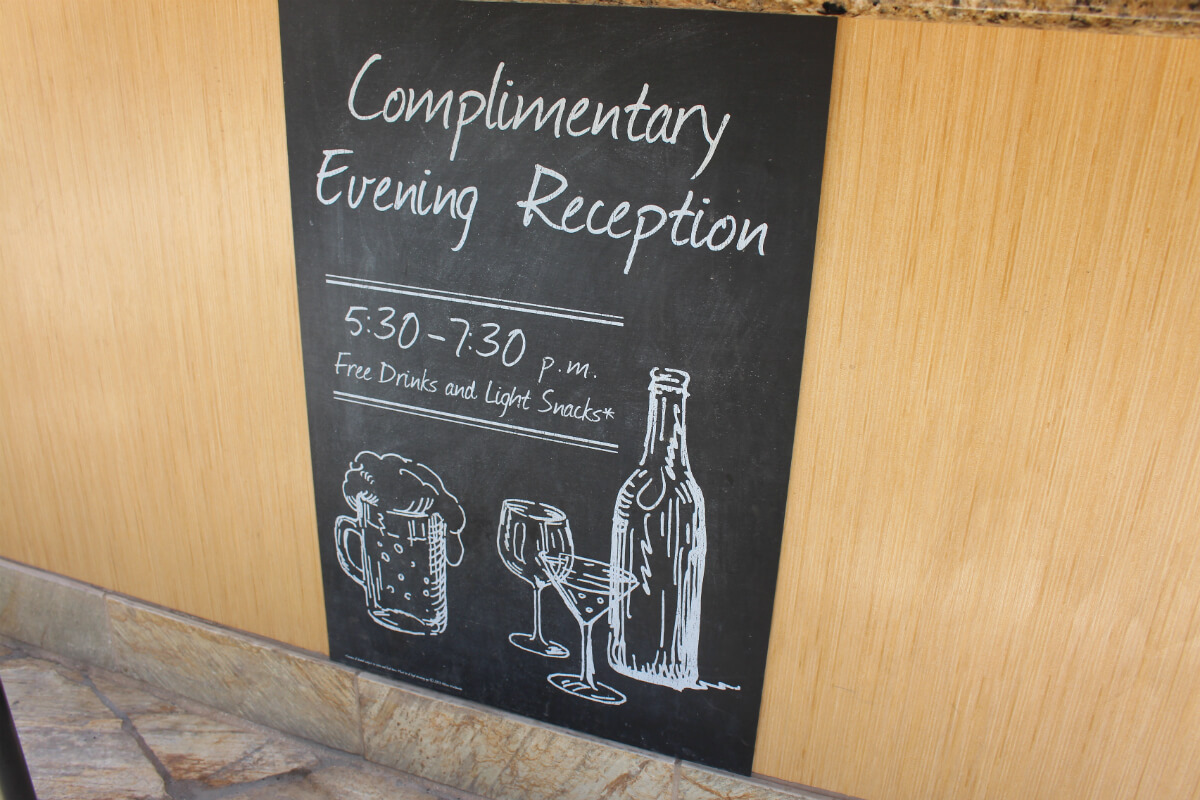 Complimentary
Evening Reception
5:30-7:30 p.m.
Free Drinks and Light Snacks*